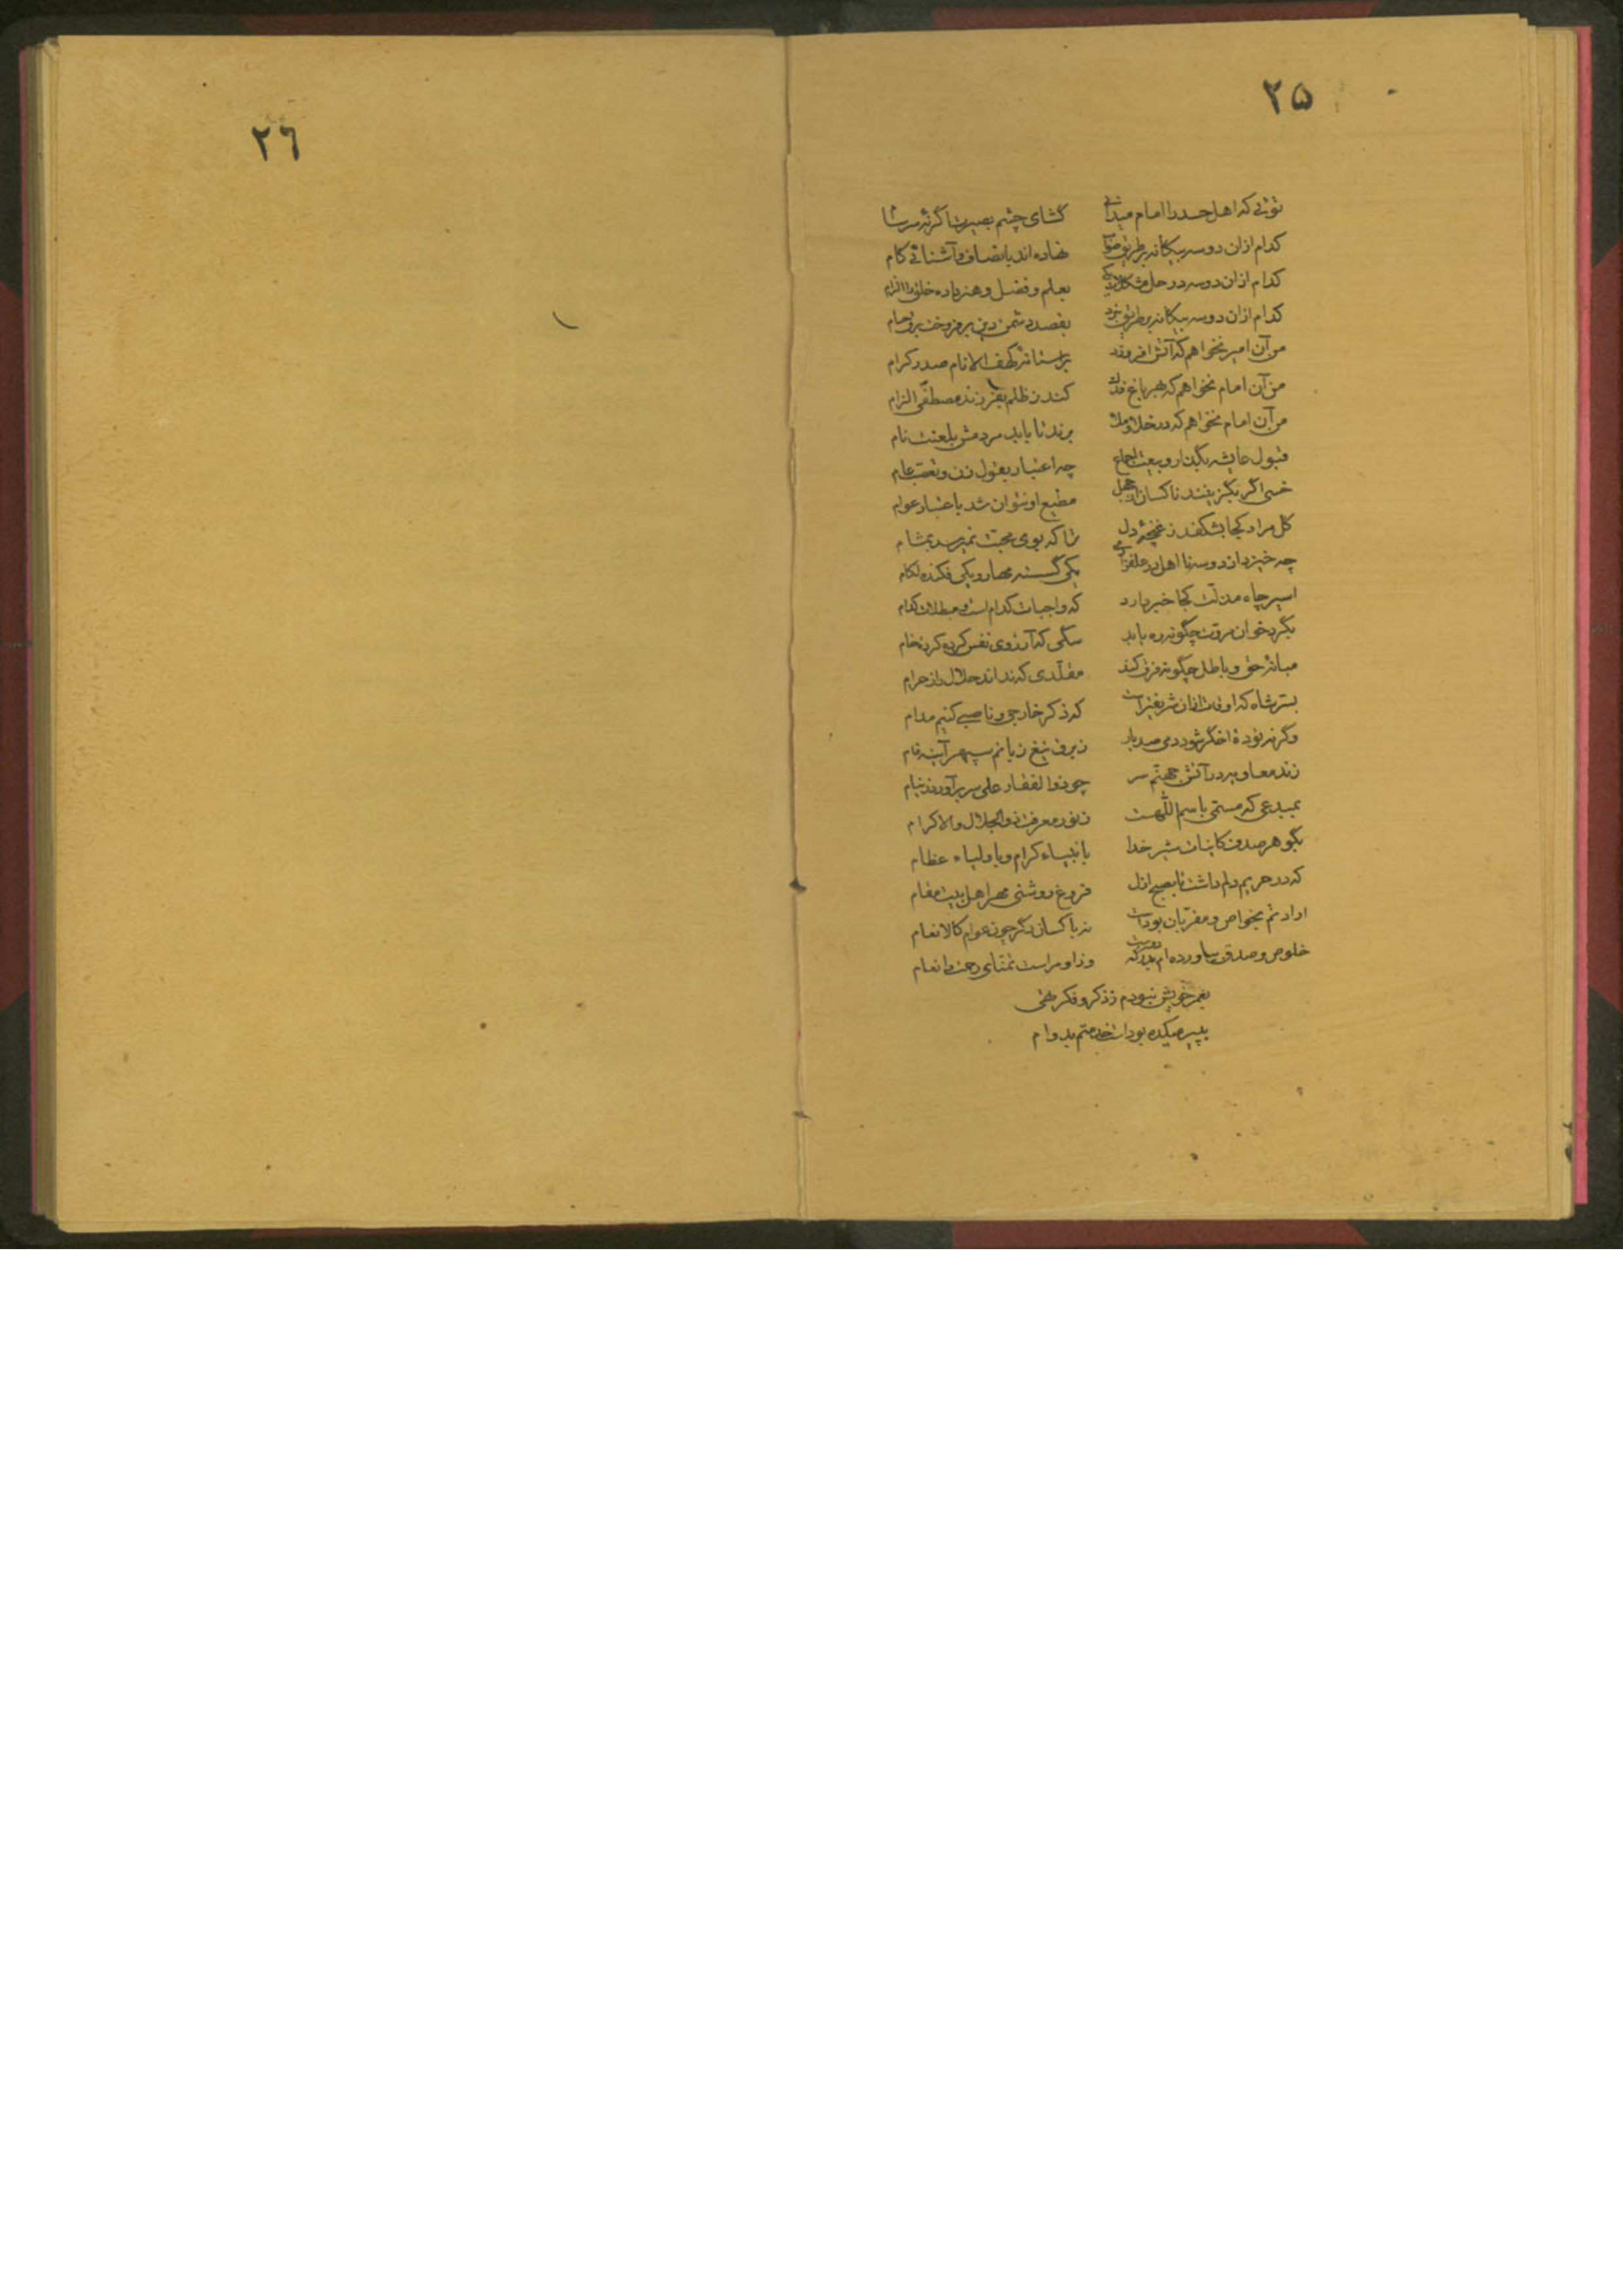 ۲۵
توئی که اهل حسد را امام میدانی گشای چشم بصیرت اگر نه سرشا
کدام ازان دو سه بیگانه بر طریق صواب نهاده اند بانصاف و آشنائی کام
کدام ازان دو سه در حل مشکلات یکی بعلم و فضل و هنر داده خلق را الزام
کدام ازان دو سه بیگانه بر طریق نبرد بقصد دشمن دین بر فروخت برق حسام
من آن امیر نخواهم که آتش افروزد بر آستانه کهف الانام صدر کرام
من آن امام نخواهم که بهر باغ فدک کند ز ظلم بفرزند مصطفی الزام
من آن امام نخواهم که در خلا و ملا برند تا بابد مردمش بلعنت نام
قبول عایشه بگذار و بیعت اجماع چه اعتبار بقول زن و تعصب عام
خسی اگر بگزینند ناکسان از جهل مطیع او نتوان شد باعتبار عوام
گل مراد کجا بشکفد ز غنچه دل ترا که بوی محبت نمیرسد بمشام
چه خیزد از دو سه نا اهل در یکی گسسته مهار و یکی فکنده لگام
اسیر چاه مذلت کجا خبر دارد که واجبات کدام است و مبطلات کدام
بگرد خوان مروت چگونه ره یابد سگی که آرزوی نفس کرده گردنخام
میانه حق و باطل چگونه فرق کند مقلدی که نداند حلال را ز حرام
بسر شاه که اوقات ازان شریفتر است که ذکر خارجی و ناصبی کنیم مدام
وگرنه توده اخگر شود دمی صد بار ز برق تیغ زبانم سپهر آینه فام
زند معاویه در آتش جهنم سر چو ذوالفقار علی سر برآورد ز نیام
بمبدعی که مسمی باسم اللهست ز نور معرفت ذوالجلال والاکرام
بگوهر صدف کاینات شیر خدا بانبیاء کرام و باولیاء عظام
که در حریم دلم داشت تا بصبح ازل فروغ روشنی مهر اهل بیت مقام
ارادتم بخواص و مقربان بوداست نه با کسان دگر چون عوام کالانعام
خلوص و صدق بیاورده ام بدرگه دوست وزاو مراست تمنای رحمت و انعام
بعمر خویش نبودم ز ذکر و فکر تهی
بپیر میکده بود است خدمتم بدوام
۲۶